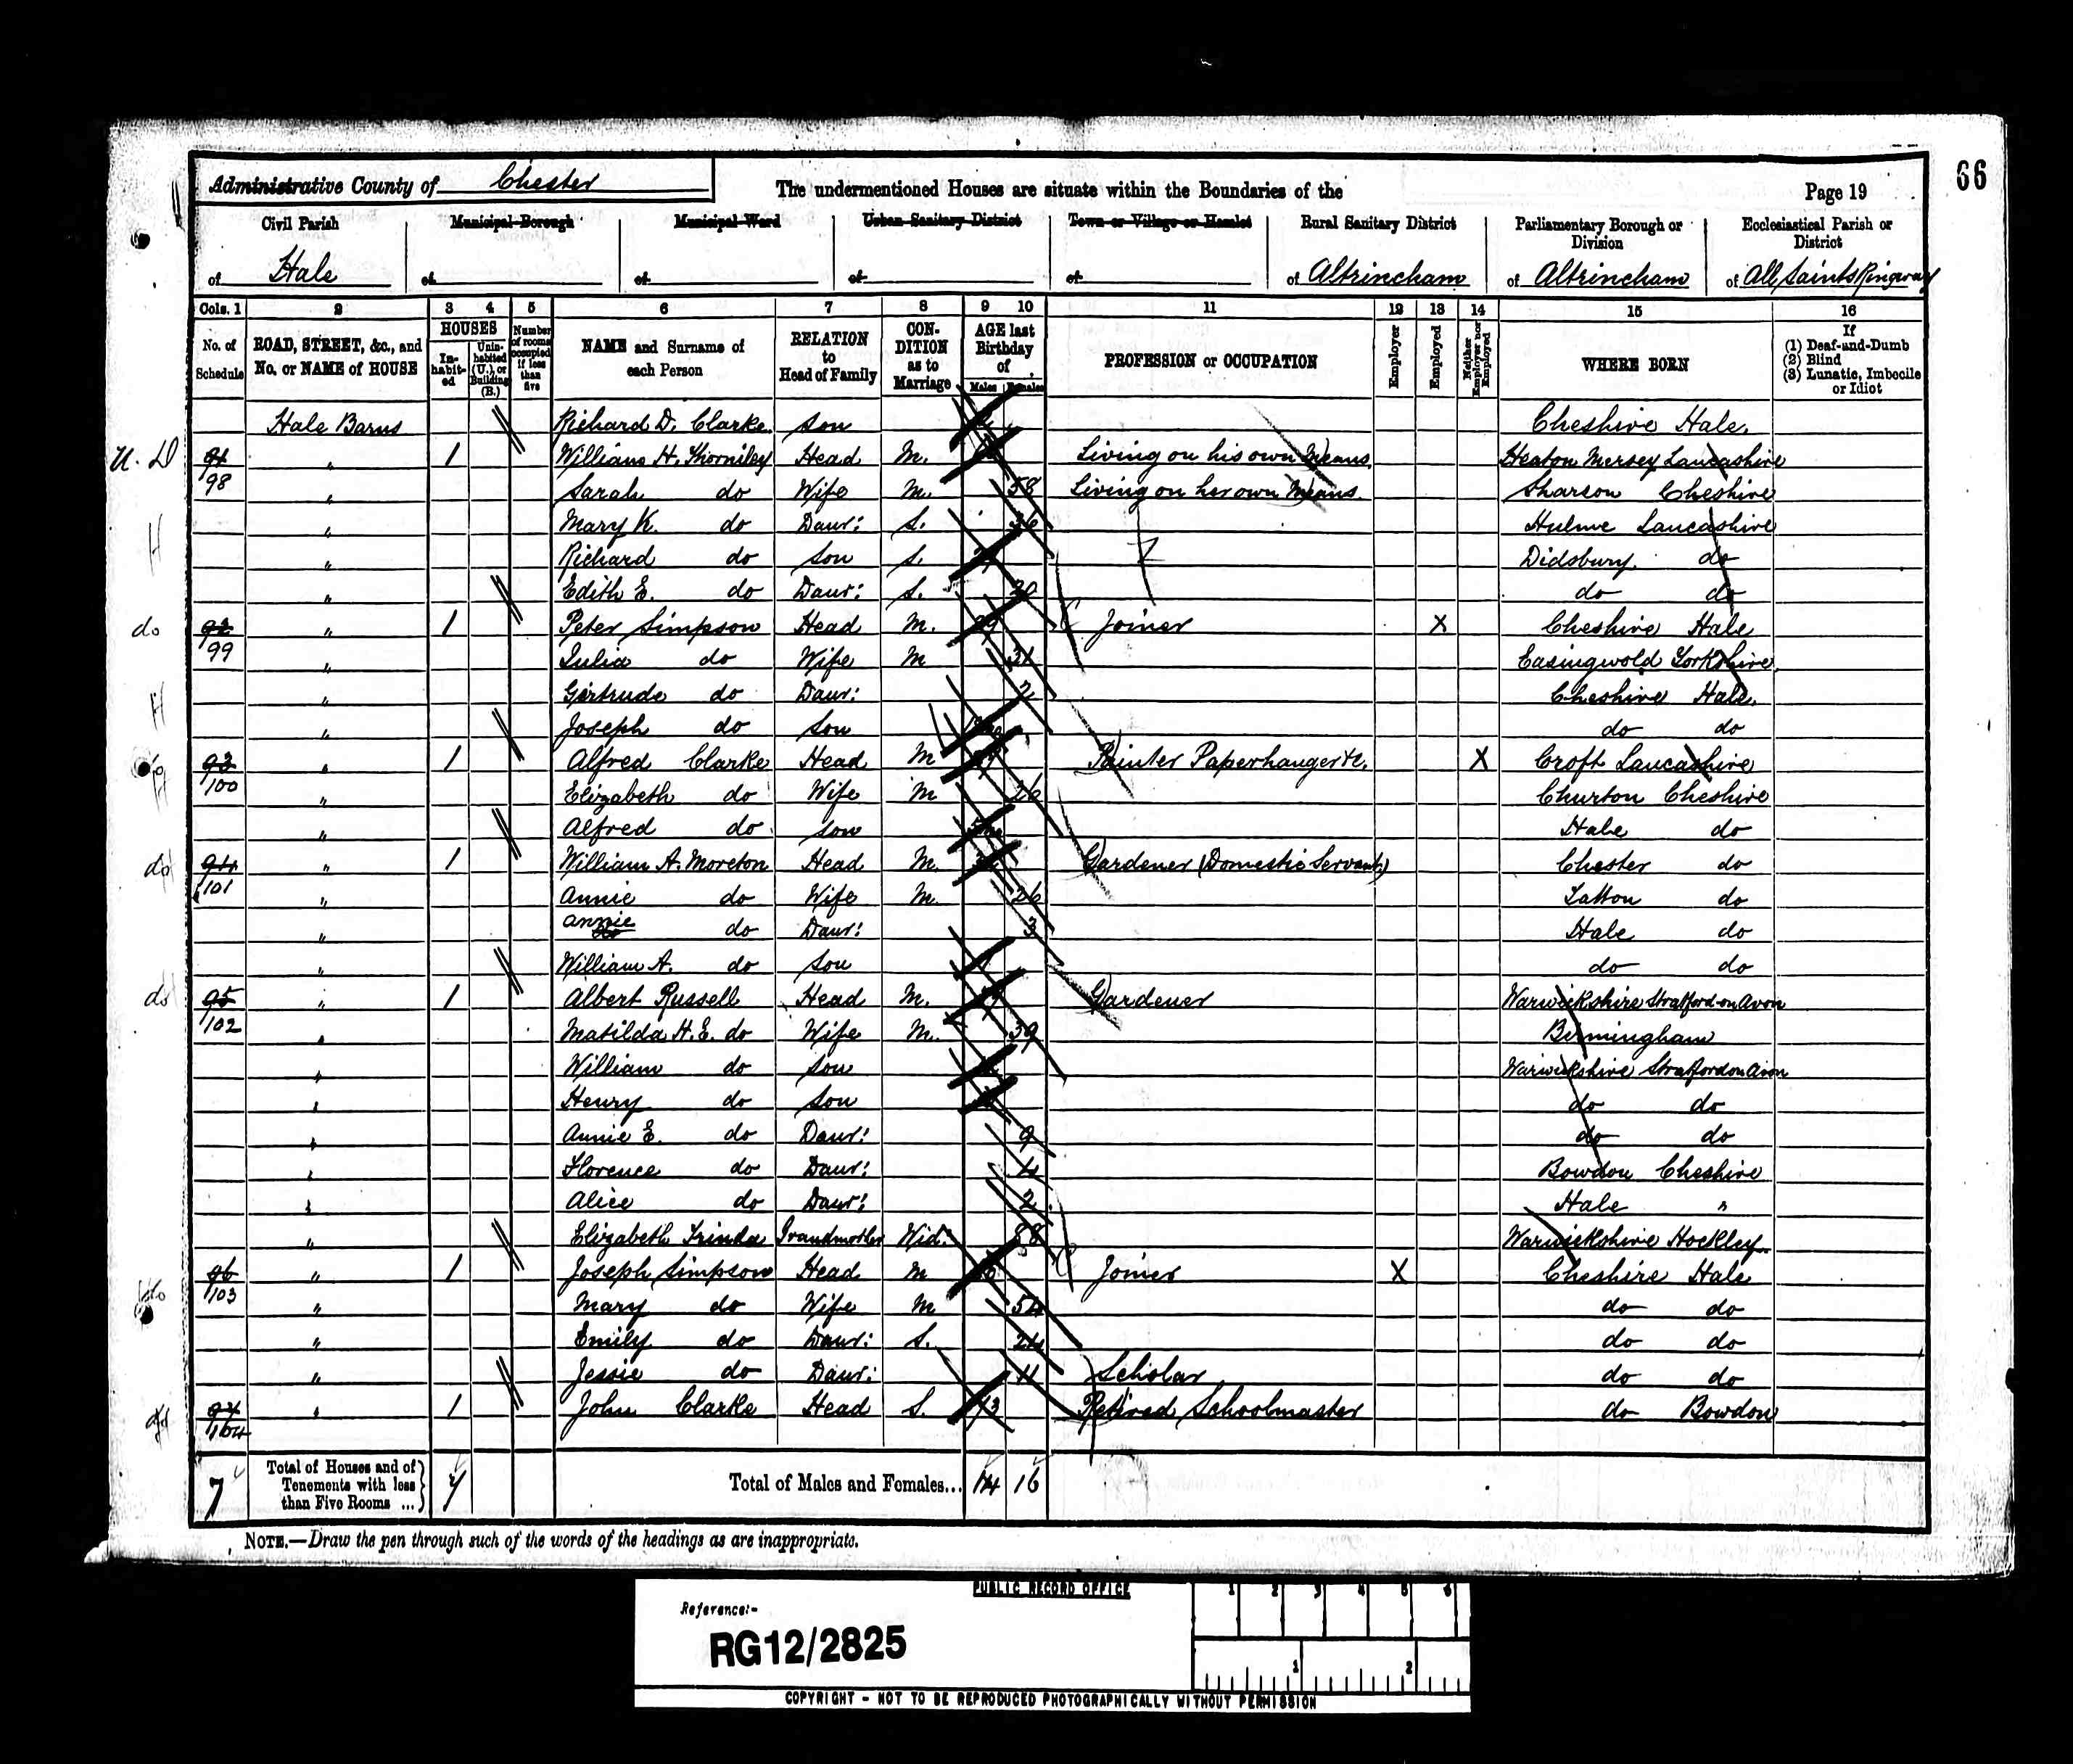 66
Administrative County of Chester
The undermentioned Houses are situate within the Boundaries of the
Page 19
Civil Parish of Hale
Municipal Borough of
Municipal Ward of
Urban Sanitary District of
Town or Village or Hamlet of
Rural Sanitary District of Altrincham
Parliamentary Borough or Division of Altrincham
Ecclesiastical Parish or District of All Saints Ringway
Cols. 1 2 3 4 5 6 7 8 9 10 11 12 13 14 15 16
No. of Schedule
ROAD, STREET, &c., and No. or NAME of HOUSE
HOUSES
In-habit-ed
Unin-habited (U.), or Building (B.)
Number of rooms occupied if less than five
NAME and Surname of each Person
RELATION to Head of Family
CON-DITION as to Marriage
AGE last Birthday of
Males Females
PROFESSION or OCCUPATION
Employer
Employed
Neither Employer nor Employed
WHERE BORN
If (1) Deaf-and-Dumb (2) Blind (3) Lunatic, Imbecile or Idiot
Hale Barns Richard D. Clarke Son Cheshire Hale
U. D 91 98 " 1 William H. Thorniley Head M. Living on his own Means Heaton Mersey Lancashire
" Sarah do Wife M. 58 Living on her own Means Sharson Cheshire
" Mary K. do Daur: S. 36 Hulme Lancashire
" Richard do Son S. Didsbury do
" Edith E. do Daur: S. 20 do do
do 92 99 " 1 Peter Simpson Head M. Joiner X Cheshire Hale
" Julia do Wife M 31 Easingwold Yorkshire
" Gertrude do Daur: 2 Cheshire Hale
" Joseph do Son do do
93 100 " 1 Alfred Clarke Head M Painter Paperhanger &c. X Croft Lancashire
" Elizabeth do Wife M 26 Churton Cheshire
" Alfred do Son Hale do
do 94 101 " 1 William A. Moreton Head M. Gardener (Domestic Servant) Chester do
" Annie do Wife M. 26 Tatton do
" Annie do Daur: 3 Hale do
" William A. do Son do do
do 95 102 " 1 Albert Russell Head M. Gardener Warwickshire Stratford on Avon
" Matilda H. E. do Wife M. 39 Birmingham
" William do Son Warwickshire Stratford on Avon
" Henry do Son do do
" Annie E. do Daur: 9 do do
" Florence do Daur: 4 Bowdon Cheshire
" Alice do Daur: 2 Hale "
" Elizabeth Grandmother Wid. 88 Warwickshire Hockley
do 96 103 " 1 Joseph Simpson Head M Joiner X Cheshire Hale
" Mary do Wife M 54 do do
" Emily do Daur: S. 24 do do
" Jessie do Daur: 11 Scholar do do
do 97 104 " 1 John Clarke Head S. 73 Retired Schoolmaster do Bowdon
7 Total of Houses and of Tenements with less than Five Rooms ... 7 Total of Males and Females... 14 16
NOTE.—Draw the pen through such of the words of the headings as are inappropriate.
PUBLIC RECORD OFFICE
1 2 3 4 5 6
Reference:-
RG12/2825
1 2
COPYRIGHT - NOT TO BE REPRODUCED PHOTOGRAPHICALLY WITHOUT PERMISSION